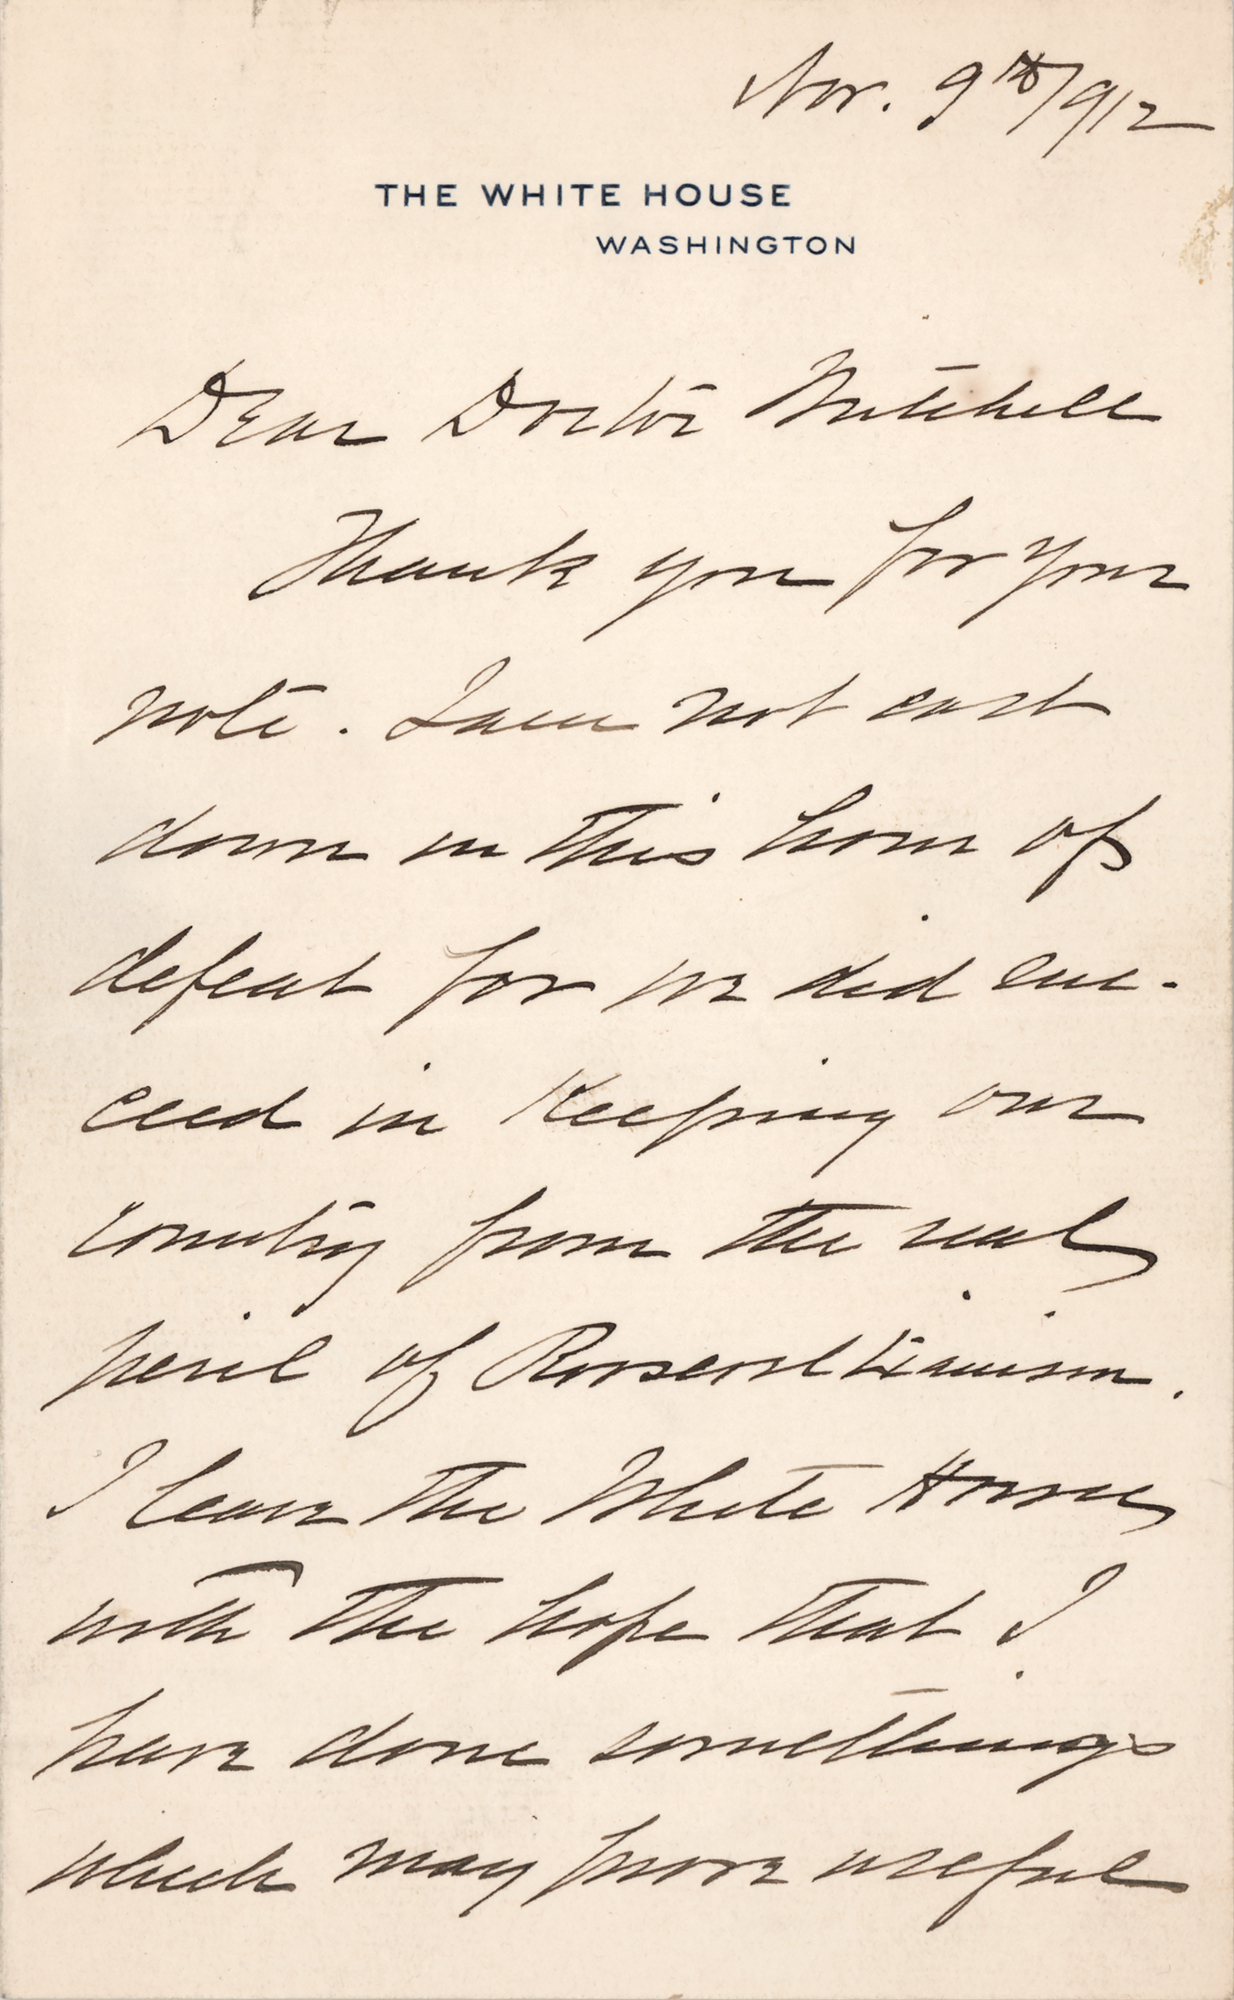 Nov. 9th/912
THE WHITE HOUSE
WASHINGTON
Dear Doctor Mitchell
Thank you for your
note. I am not cast
down in this hour of
defeat for we did suc-
ceed in keeping our
country from the real
peril of Rooseveltianism.
I leave the White House,
with the hope that I
have done somethings
which may prove useful